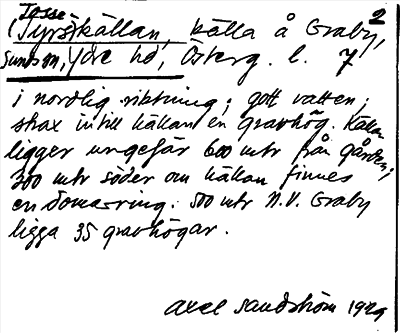 Josse-
(Tyrs)källan, källa å Graby, 2
Sund sn, Ydre hd, Österg. l. 7
i nordlig riktning; gott vatten;
strax intill källan en gravhög. Källan
ligger ungefär 600 mtr från gården;
300 mtr söder om källan finnes
en domarring. 500 mtr N.V. Graby
ligga 35 gravhögar.
Axel Sandström 1929